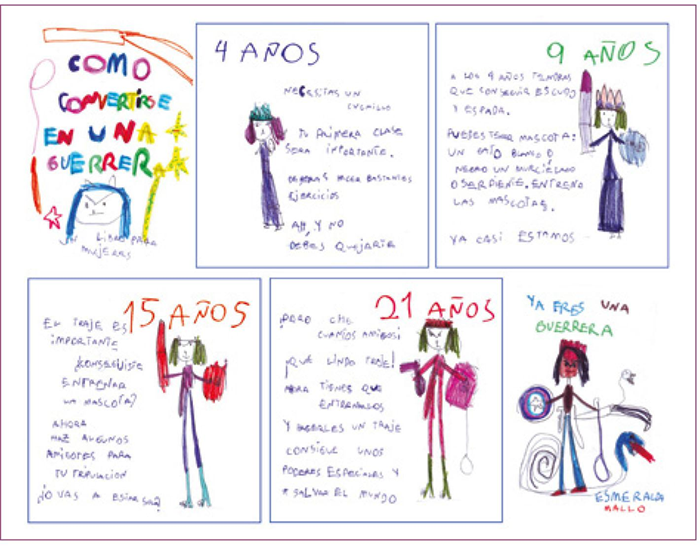 COMO
CONVERTIRSE
EN UNA
GUERRERA
UN LIBRO PARA
MUJERES
4 AÑOS
NECESITAS UN
CUCHILLO
TU PRIMERA CLASE
SERA IMPORTANTE.
DEBERAS HACER BASTANTES
EJERCICIOS
AH, Y NO
DEBES QUEJARTE
9 AÑOS
A LOS 9 AÑOS TENDRAS
QUE CONSEGUIR ESCUDO
Y ESPADA.
PUEDES TENER MASCOTA:
UN GATO BLANCO O
NEGRO UN MURCIELAGO
O SERPIENTE. ENTRENA
LAS MASCOTAS.
YA CASI ESTAMOS
15 AÑOS
EL TRAJE ES
IMPORTANTE
¿CONSEGUISTE
ENTRENAR
LA MASCOTA?
AHORA
HAZ ALGUNOS
AMIGOTES PARA
TU TRIPULACION
¿O VAS A ESTAR SOLA?
21 AÑOS
¡PERO CHE
CUANTOS AMIGOS!
¡QUE LINDO TRAJE!
AHORA TIENES QUE
ENTRENARLOS
Y HACERLES UN TRAJE
CONSIGUE UNOS
PODERES ESPECIALES Y
A SALVAR EL MUNDO
YA ERES UNA
GUERRERA
ESMERALDA
MALLO